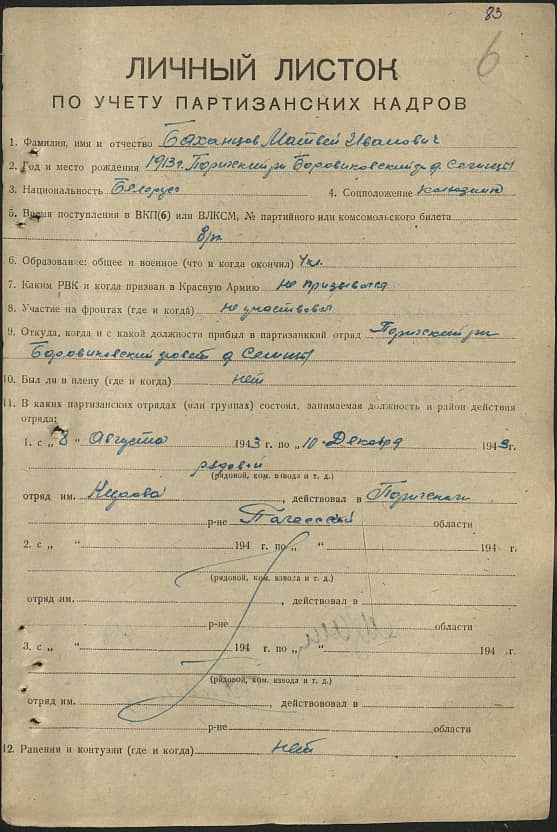 83
6
ЛИЧНЫЙ ЛИСТОК
ПО УЧЕТУ ПАРТИЗАНСКИХ КАДРОВ
1. Фамилия, имя и отчество Баханцов Матвей Иванович
2. Год и место рождения 1913 г. Паричский р-н Боровиковский д.
3. Национальность Белорус 4. Соцположение
5. Время поступления в ВКП(б) или ВЛКСМ, № партийного или комсомольского билета
б/п
6. Образование: общее и военное (что и когда окончил) 4 кл.
7. Каким РВК и когда призван в Красную Армию не призывался
8. Участие на фронтах (где и когда) не участвовал
9. Откуда, когда и с какой должности прибыл в партизанккий отряд Паричский р-н
Боровиковский д.
10. Был ли в плену (где и когда) нет
11. В каких партизанских отрядах (или группах) состоял, занимаемая должность и район действия
отряда:
1. с „ 8 “ Августа 1943 г. по „ 10 “ Декабря 1943 г.
рядовой
(рядовой, ком. взвода и т. д.)
отряд им. Кирова, действовал в
р-не области
2. с „ “ 194 г. по „ “ 194 г.
(рядовой, ком. взвода и т. д.)
отряд им. , действовал в
р-не области
3. с „ “ 194 г. по „ “ 194 г.
(рядовой, ком. взвода и т. д.)
отряд им. , действововал в
р-не области
12. Ранения и контузии (где и когда) нет